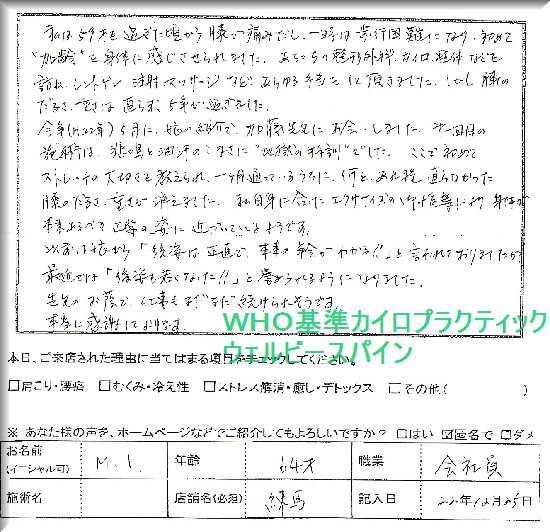 私は59才を過ぎた頃から膝が痛みだし、一時は歩行困難になり、初めて
"加齢"を身体に感じさせられました。あちこちの整形外科、カイロ、整体などを
訪ね、レントゲン、注射、マッサージなどあらゆる手当をして頂きましたが、しかし膝の
だるさ、重さは直らず、5年が過ぎました。
今年(H22年)5月に、娘の紹介で、加藤先生にお会いしました。第一回目の
施術は、悲鳴と油汗のにじむ"地獄の特訓"でした。ここで初めて
ストレッチの大切さを教えられ、一ヶ月通っているうちに、何と、あれ程、直らなかった
膝のだるさ、重さが消えてました。私自身に合ったエクササイズのご指導等により、身体が
本来あるべき正常の姿に近づいているようです。
以前は娘から「後姿は正直で、本来の年令がわかる!!」と言われておりましたが
最近では「後姿も若くなった!!」と誉められるようになりました。
先生のお蔭で、仕事もまだまだ続けられそうです。
本当に感謝しております。
WHO基準カイロプラクティック
ウェルビースパイン
本日、ご来店された理由に当てはまる項目をチェックしてください。
□肩こり・腰痛 □むくみ・冷え性 □ストレス解消・癒し・デトックス □その他( )
※ あなた様の声を、ホームページなどでご紹介してもよろしいですか? □はい ☑匿名で □ダメ
お名前(イニシャル可) M.I. 年齢 64才 職業 会社員
施術名 店舗名(必須) 練馬 記入日 22年12月25日